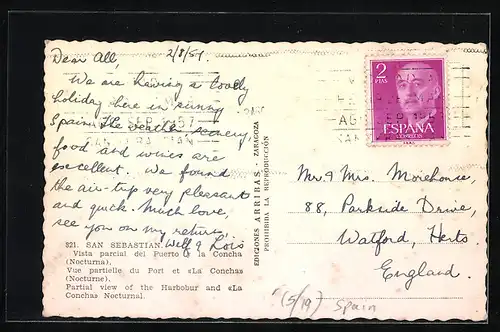 Dear All, 2/8/57.
We are having a lovely
holiday here in sunny
Spain. The weather, scenery,
food and wines are
excellent. We found
the air-trip very pleasant
and quick. Much love,
see you on my return.
821. SAN SEBASTIAN. & Lois
Vista parcial del Puerto y la Concha
(Nocturna).
Vue partielle du Port et «La Concha»
(Nocturne).
Partial view of the Harbour and «La
Concha» Nocturnal.
EDICIONES ARRIBAS - ZARAGOZA
PROHIBIDA LA REPRODUCCIÓN
2
PTAS
ESPAÑA
CORREOS
Mr. & Mrs. Morehouse,
88, Parkside Drive,
Watford, Herts.
England.
(5/19) Spain